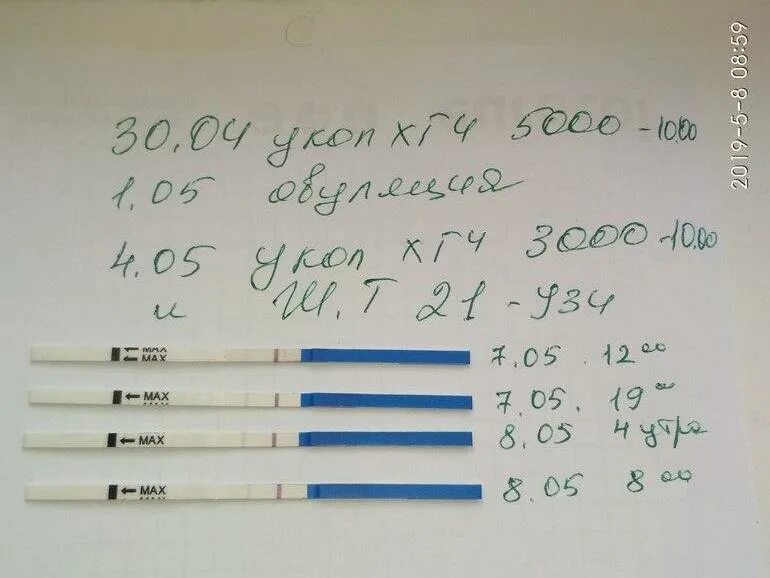 30.04 укол хГч 5000 - 10.00
1.05 овуляция
4.05 укол хГч 3000 - 10.00
и Ж.Т 21 - УЗИ
MAX
MAX 7.05 . 12 00
MAX 7.05 . 19 00
MAX 8.05 4 утра
MAX 8.05 8 00
2019-5-8 08:59